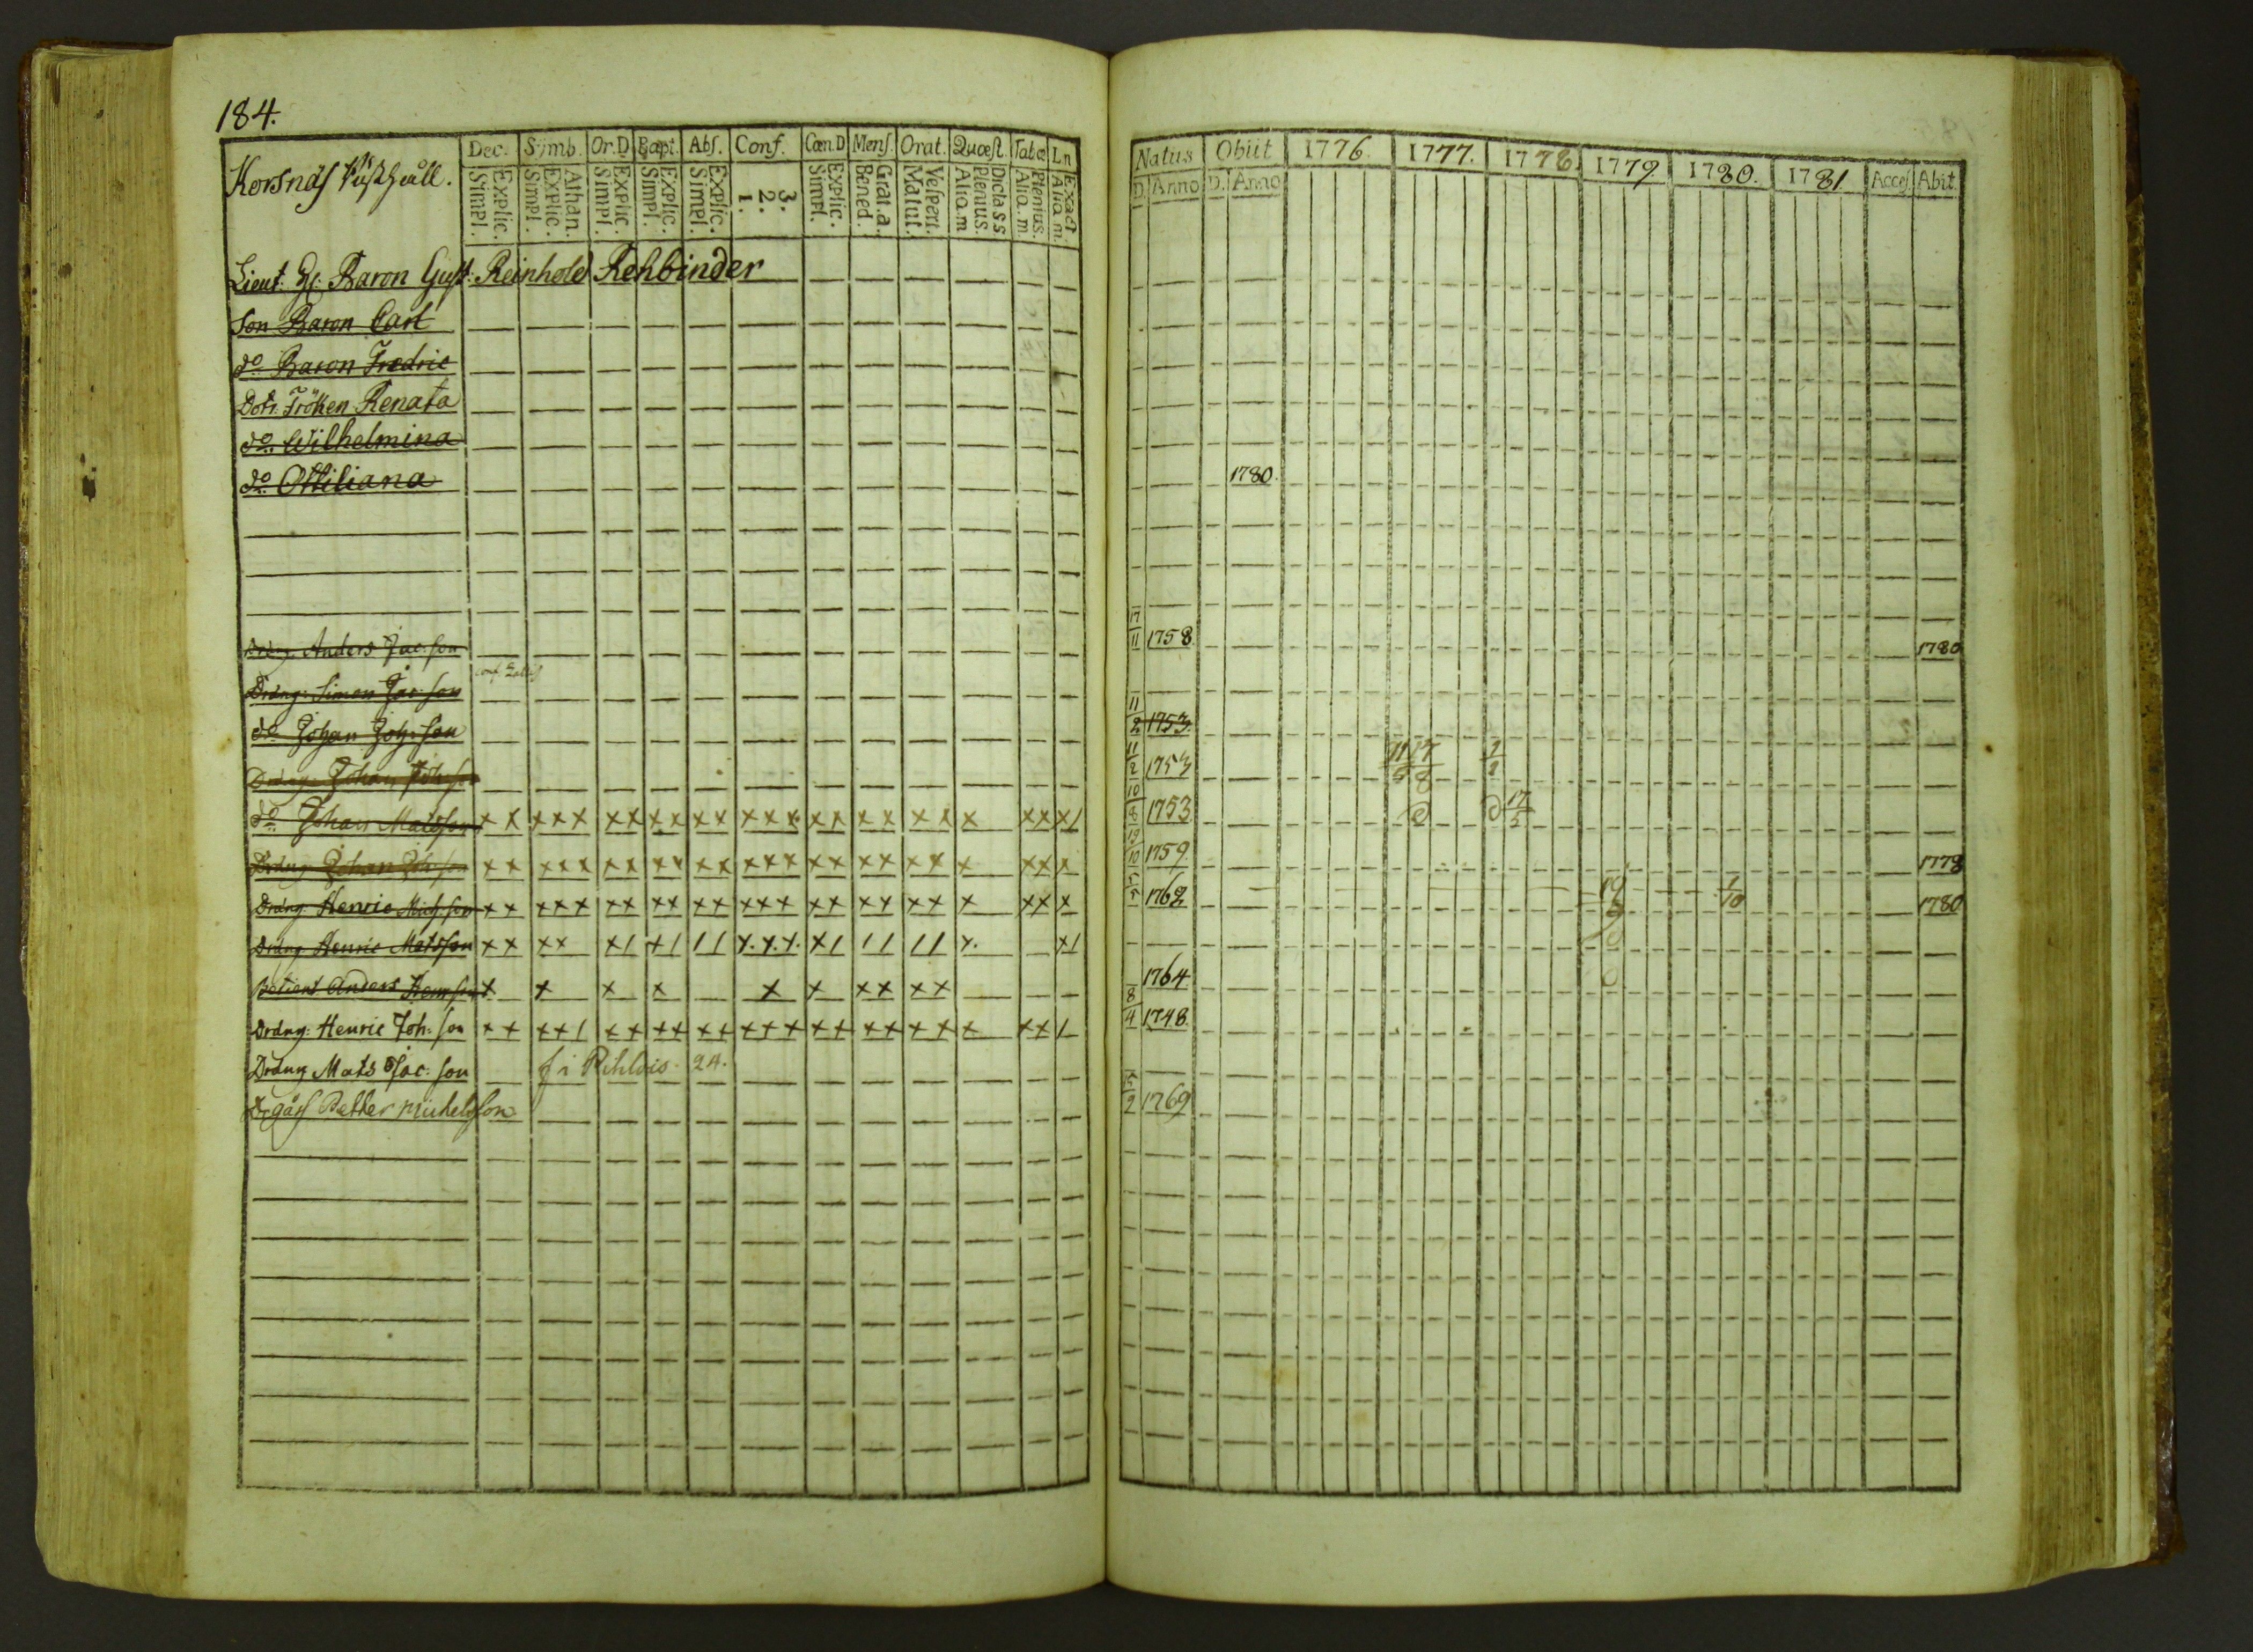 184.
Korsnäs Rusthåll.
Dec. Symb. Or.D Bapt. Abs. Conf. Cœn.D Mens. Orat. Quæst. Tabœ Ln
Simpl. Explic. Simpl. Explic. Athan. Simpl. Explic. Simpl. Explic. Simpl. Explic. 1. 2. 3. Simpl. Explic. Bened. Grat.a. Matut. Vespert. Aliq.m Plenius. Dicta s s Aliq.m Plenius. Aliq.m. Exact.
Lieut. H: Baron Gust. Reinhold Rehbinder
Son Baron Carl
do Baron Fredric
Dotr. Fröken Renata
do Wilhelmina
do Ottiliana
Dräng. Anders Jac: son
Dräng: Simon Jac: son
do Johan Joh: son
Dräng. Johan Joh: son
do Johan Matsson x x x x x x x x x x x x x x x x x x x x x x x x x /
Dräng Johan Joh: son x x x x x x x x x x x x x x x x x x x x x x x x x
Dräng Henric Mich: son x x x x x x x x x x x x x x x x x x x x x x x x x
Dräng Henric Matsson x x x x x / x / / / x. x. x. x / / / / / x. x /
Betient Anders Henr: son x x x x x x x x x x
Dräng: Henric Joh: son x x x x / x x x x x x x x x x x x x x x x x x /
Dräng Mats Jac: son f i Rihlais. 24.
Dr gåss Petter Michelsson
Natus Obiit 1776. 1777. 1778. 1779. 1780. 1781. Acces. Abit.
D. Anno D. Anno
1780.
17/11 1758. 1780
11/2 1753.
11/2 1753 1/2
10/8 1753 17/5
19/10 1759. 1778
1762 1/10 1780
1764
8/4 1748.
5/2 1769